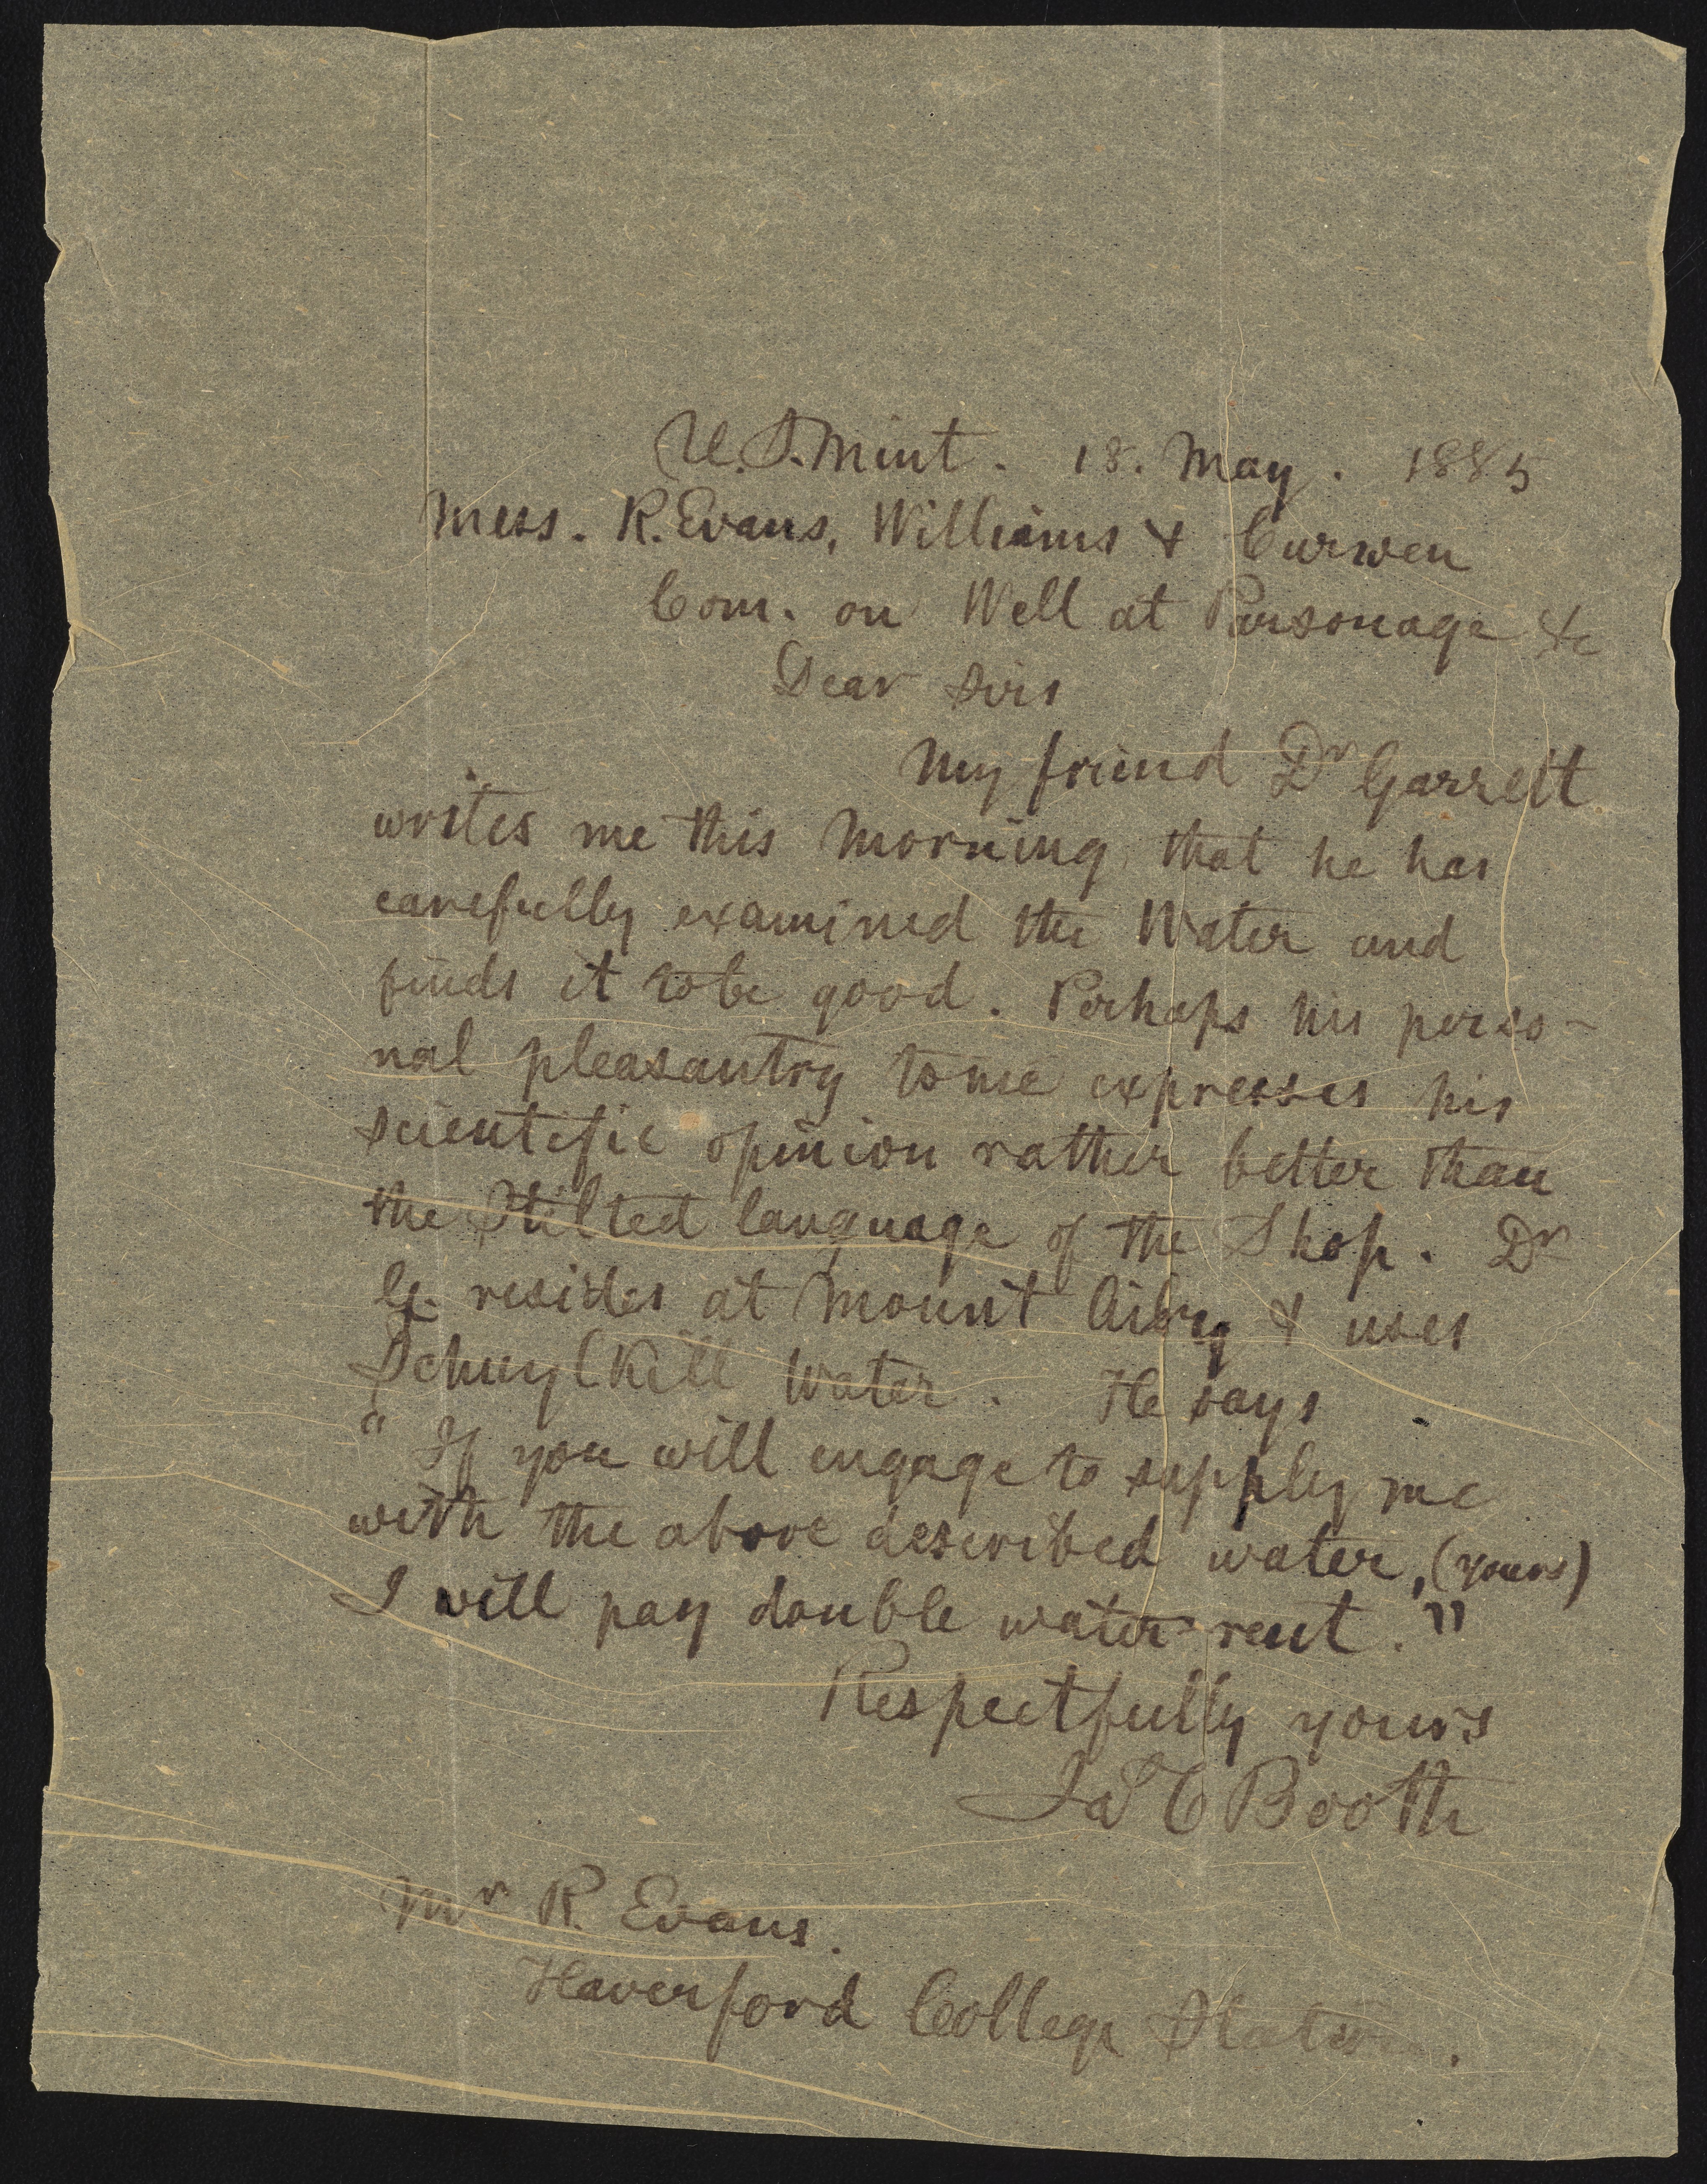 U.S. Mint. 18. May. 1885
Mess. R. Evans, Williams & Curwen
Com. on Well at Parsonage &c
Dear Sirs
My friend Dr Garrett
writes me this morning that he has
carefully examined the Water and
finds it to be good. Perhaps his perso-
nal pleasantry to me expresses his
scientific opinion rather better than
the Stilted language of the Shop. Dr
G. resides at Mount Airy & uses
Schuylkill Water. He says
"If you will engage to supply me
with the above described water, (yours)
I will pay double water rent."
Respectfully yours
Jas C Booth
Mr R. Evans.
Haverford College Station.